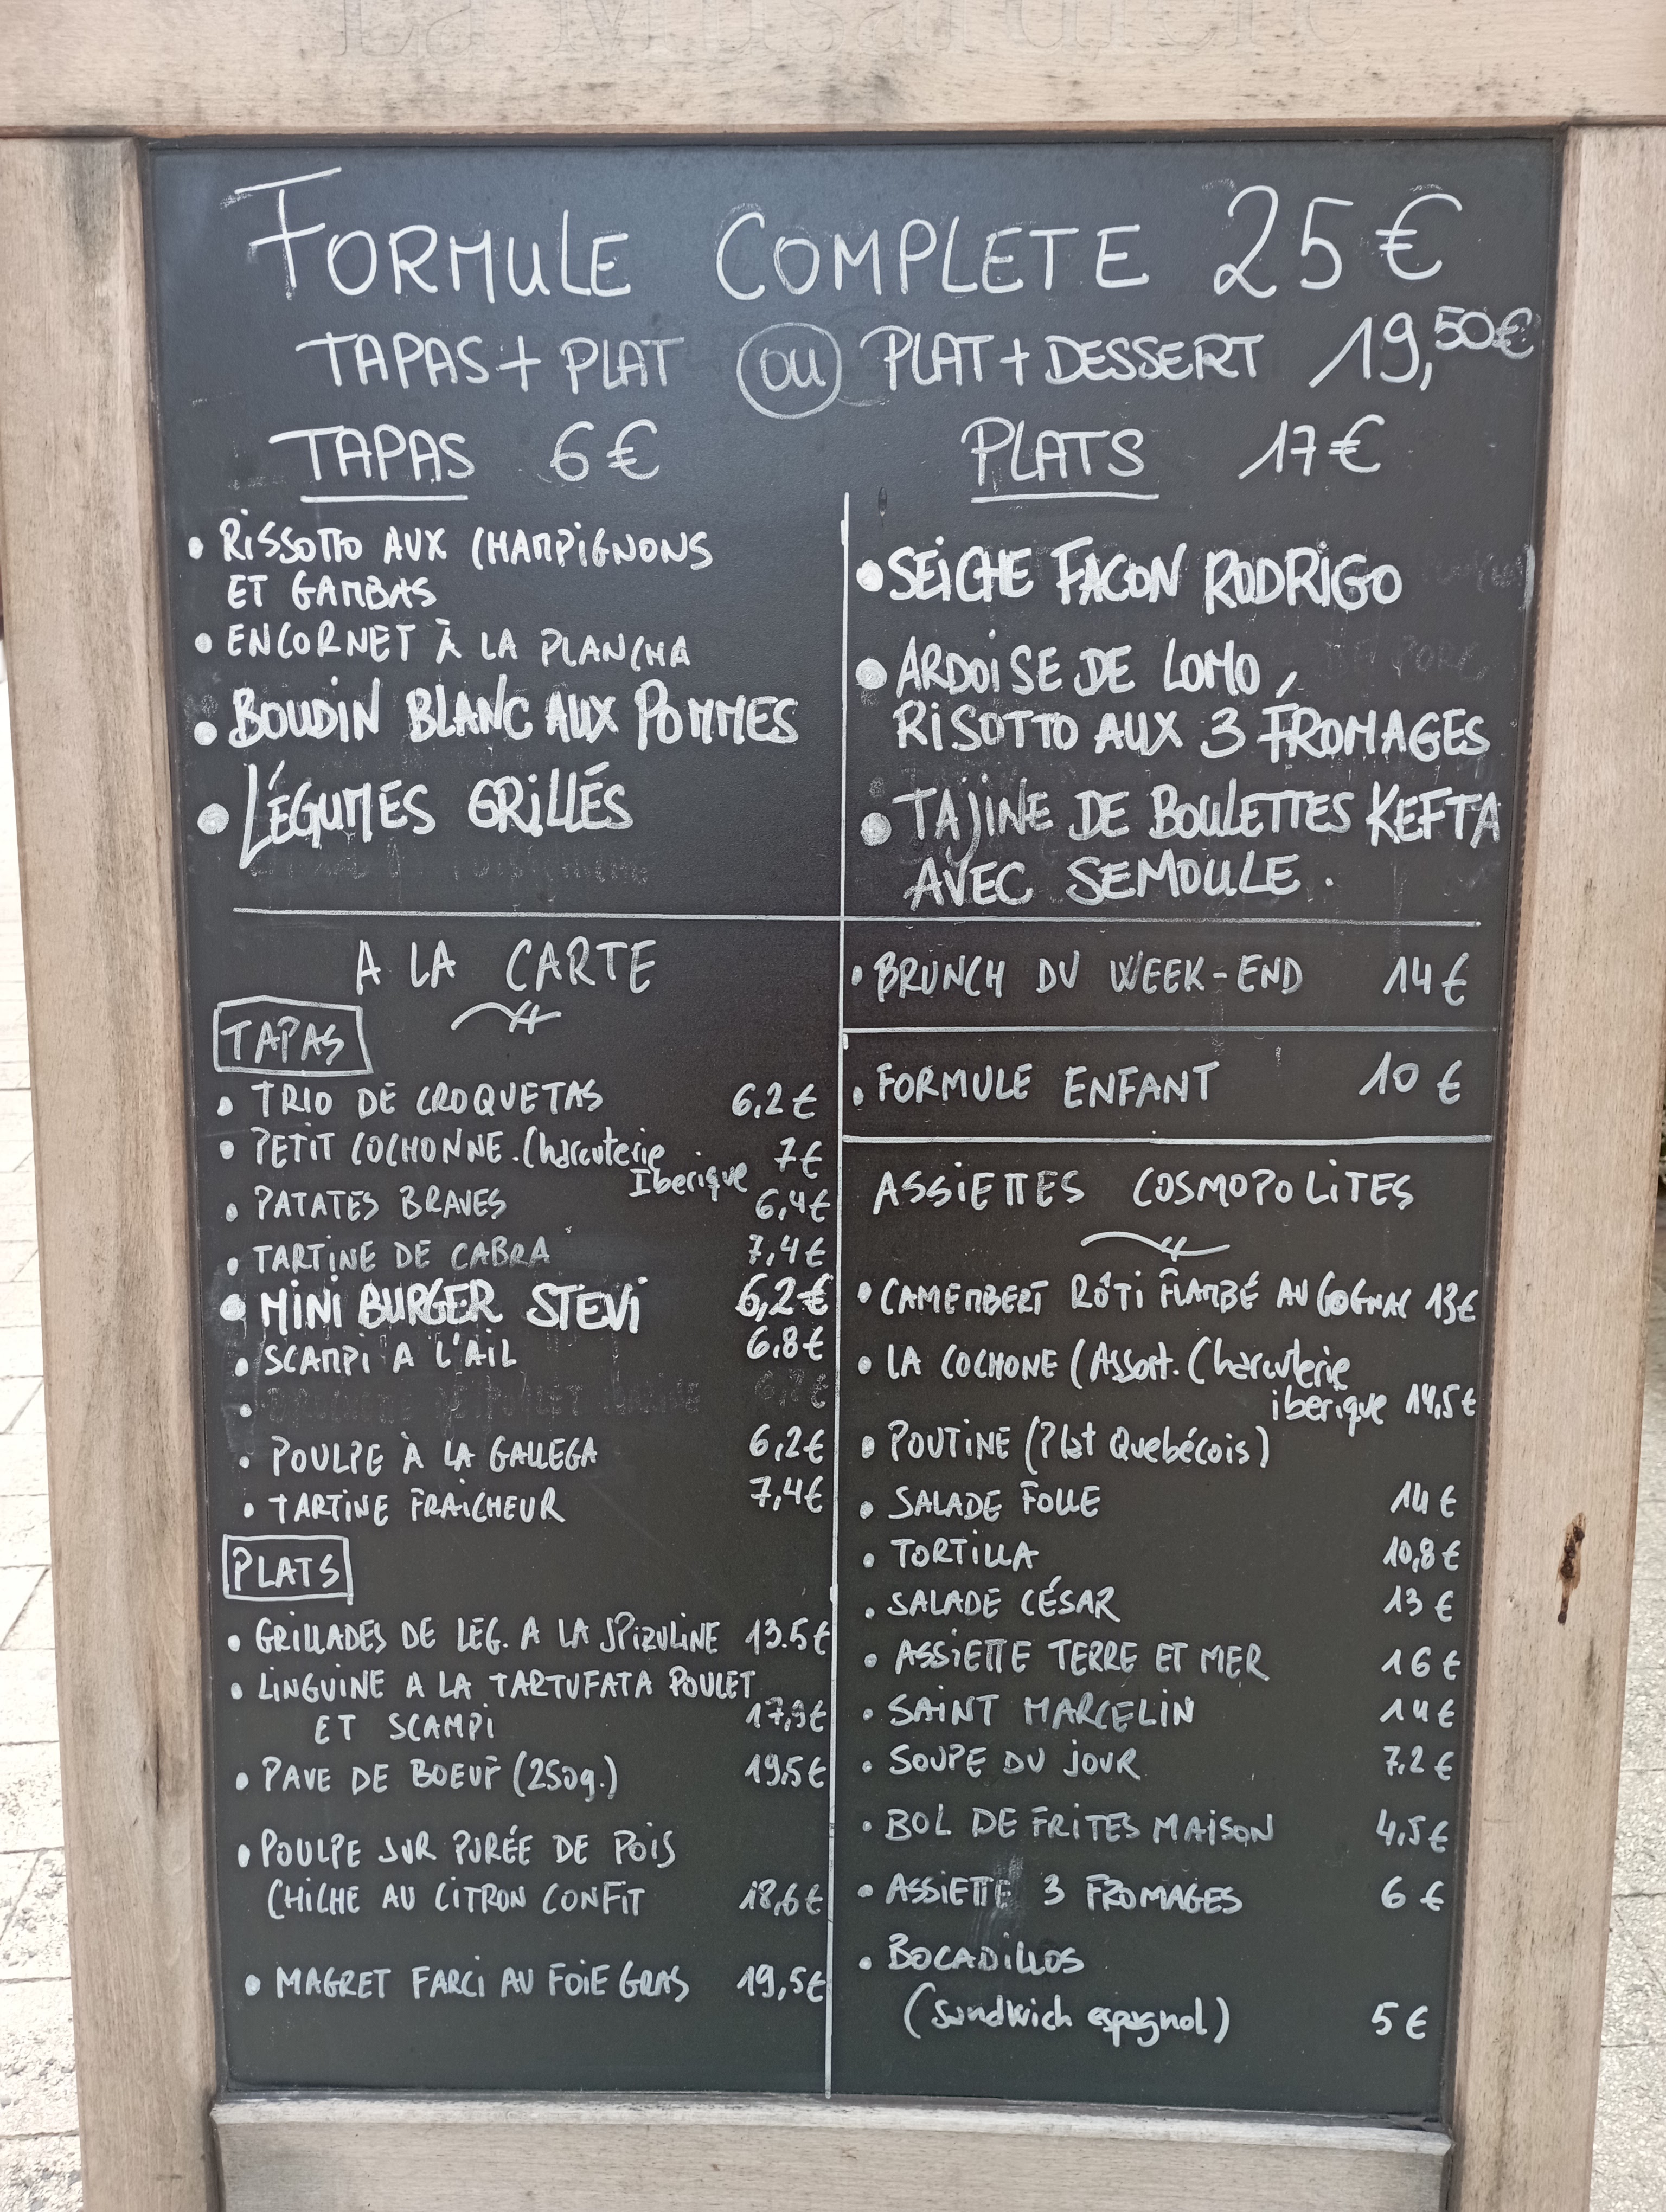 FORMULE COMPLETE 25€
TAPAS + PLAT OU PLAT + DESSERT 19,50€
TAPAS 6€
• RISSOTTO AUX CHAMPIGNONS
ET GAMBAS
• ENCORNET À LA PLANCHA
• BOUDIN BLANC AUX POMMES
• LÉGUMES GRILLÉS
PLATS 17€
• SEICHE FACON RODRIGO
• ARDOISE DE LOMO,
RISOTTO AUX 3 FROMAGES
• TAJINE DE BOULETTES KEFTA
AVEC SEMOULE.
A LA CARTE
TAPAS
• TRIO DE CROQUETAS 6,2€
• PETIT COCHONNE. Charcuterie
Iberique 7€
• PATATES BRAVES 6,4€
• TARTINE DE CABRA 7,4€
• MINI BURGER STEVI 6,2€
• SCAMPI A L'AIL 6.8€
•
• POULPE À LA GALLEGA 6,2€
• TARTINE FRAICHEUR 7,4€
PLATS
• GRILLADES DE LEG. A LA SPIRULINE 13.5€
• LINGUINE A LA TARTUFATA POULET
ET SCAMPI 17,9€
• PAVE DE BOEUF (250g.) 19,5€
• POULPE SUR PURÉE DE POIS
CHICHE AU CITRON CONFIT 18,6€
• MAGRET FARCI AU FOIE GRAS 19,5€
• BRUNCH DU WEEK-END 14€
• FORMULE ENFANT 10€
ASSIETTES COSMOPOLITES
• CAMEMBERT RÔTI FLAMBÉ AU COGNAC 13€
• LA COCHONE (Assort. Charcuterie
iberique 14,5€
• POUTINE (Plat Quebécois)
• SALADE FOLLE 14€
• TORTILLA 10,8€
• SALADE CÉSAR 13€
• ASSIETTE TERRE ET MER 16€
• SAINT MARCELIN 14€
• SOUPE DU JOUR 7,2€
• BOL DE FRITES MAISON 4,5€
• ASSIETTE 3 FROMAGES 6€
• BOCADILLOS
(Sandwich espagnol) 5€